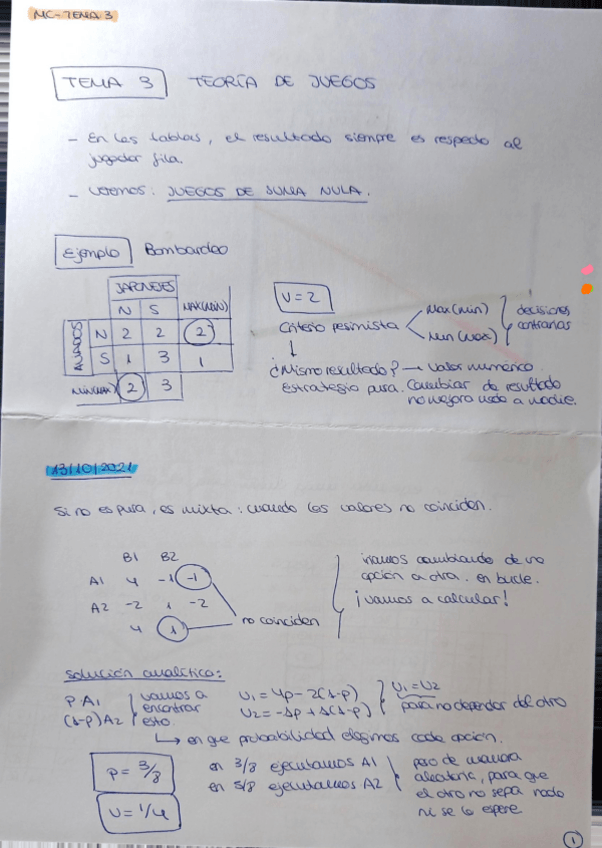 MC-TEMA 3
TEMA 3 TEORÍA DE JUEGOS
- En las tablas, el resultado siempre es respecto al
jugador fila.
- Veremos: JUEGOS DE SUMA NULA.
Ejemplo Bombardeo
JAPONESES
N S MAX(MIN)
ALIADOS N 2 2 2
S 1 3 1
MIN(MAX) 2 3
V=2
Criterio pesimista Max(min) Min(Max) decisiones
contrarias
¿Mismo resultado? → Valor numérico.
Estrategia pura. Cambiar de resultado
no mejora nada a nadie.
13/10/2021
Si no es pura, es mixta: cuando los valores no coinciden.
B1 B2
A1 4 -1 -1
A2 -2 1 -2
4 1
no coinciden
iríamos cambiando de una
opción a otra. en bucle.
¡Vamos a calcular!
Solución analítica:
P A1
(1-p) A2
vamos a
encontrar
esto.
V1 = 4p - 2(1-p)
V2 = -1p + 1(1-p)
V1 = V2
para no depender del otro
↳ en que probabilidad elegimos cada opción.
p = 3/8
V = 1/4
en 3/8 ejecutamos A1
en 5/8 ejecutamos A2
pero de manera
aleatoria, para que
el otro no sepa nada
ni se lo espere
1